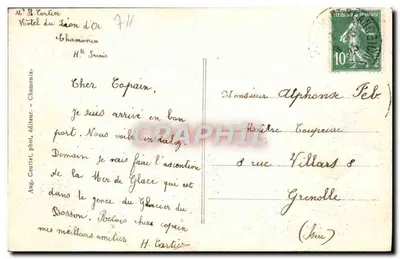 Mr H. Cartier
Hôtel du Lion d'Or
Chamonix
Hte Savoie
74
Cher Copain.
Je suis arrivé en bon
port. Nous voila
Demain je vais faire l'ascention
de la Mer de Glace qui est
dans le genre du Glacier du
Bosson. Reçois cher copain
mes meilleurs amitiés
H. Cartier
Aug. Couttet, phot. éditeur. - Chamonix.
10
Monsieur Alphonse Feb
Maître Coupeuse
8 rue Villars 8
Grenoble
(Isère)
CPARAMA.COM